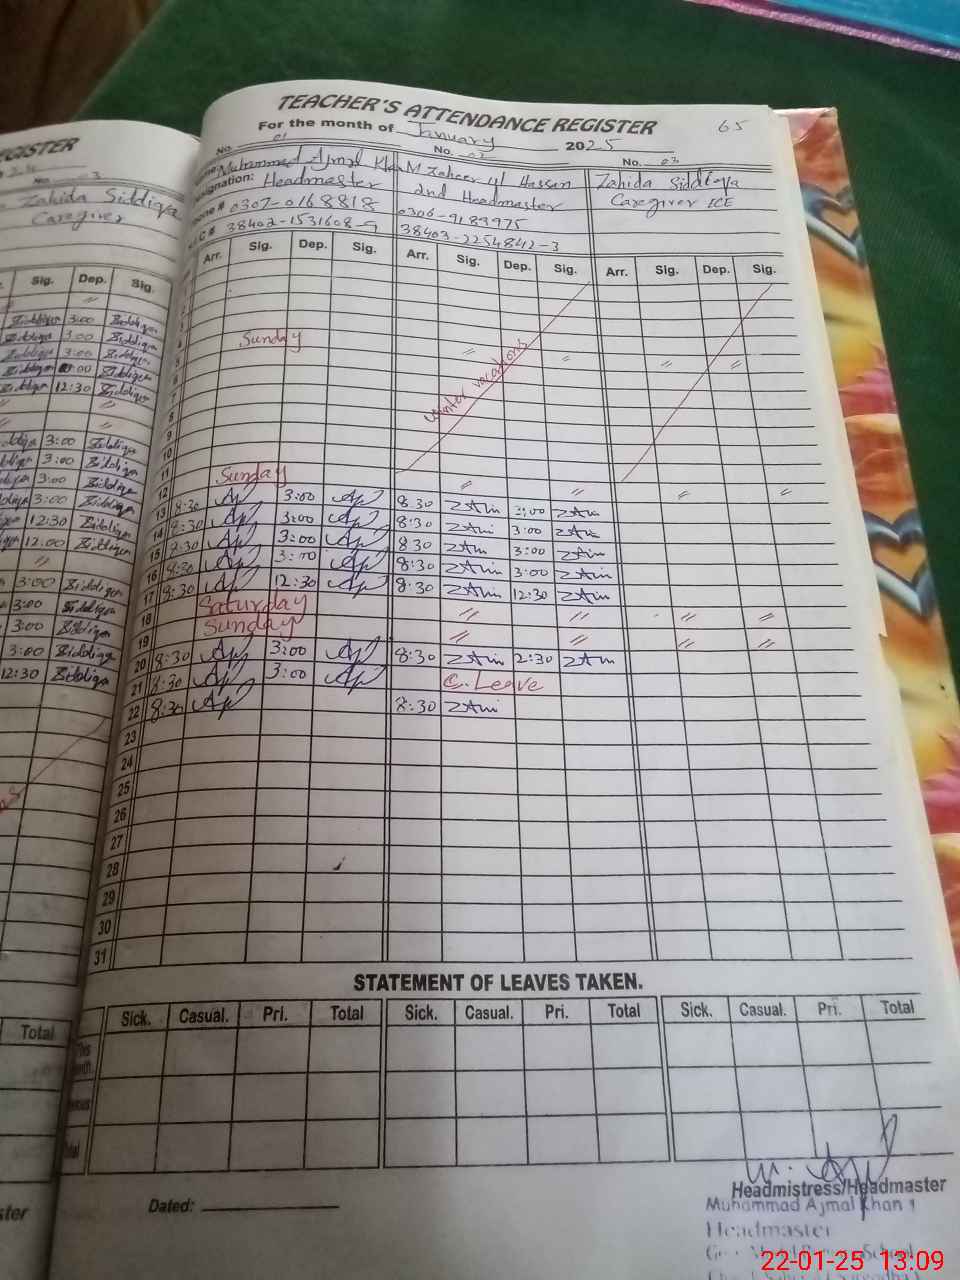 EGISTER
No. 03
Zahida Siddiqa
Caregiver
Sig. Dep. Sig.
Siddiqa 3:00 Siddiqa
Siddiqa 3:00 Siddiqa
Siddiqa 3:00 Siddiqa
Siddiqa :00 Siddiqa
Siddiqa 12:30 Siddiqa
3:00 Siddiqa
3:00 Siddiqa
3:00 Siddiqa
3:00 Siddiqa
12:30 Siddiqa
12:00 Siddiqa
3:00 Siddiqa
3:00 Siddiqa
3:00 Siddiqa
3:00 Siddiqa
12:30 Siddiqa
Total
65
TEACHER'S ATTENDANCE REGISTER
For the month of January 2025
No. 01 No. 02 No. 03
Muhammad Ajmal Khan M Zaheer ul Hassan Zahida Siddiqa
Designation: Headmaster 2nd Headmaster Caregiver ECE
0307-0168818 0306-9189975
38402-1531608-9 38403-2254842-3
Arr. Sig. Dep. Sig. Arr. Sig. Dep. Sig. Arr. Sig. Dep. Sig.
4
5 Sunday
6
7
8
9
10
11
winter vacations
12 Sunday
13 8:30 3:00 8:30 3:00
14 8:30 3:00 8:30 3:00
15 8:30 3:00 8:30 3:00
16 8:30 3:00 8:30 3:00
17 8:30 12:30 8:30 12:30
18 Saturday
19 Sunday
20 8:30 3:00 8:30 2:30
21 8:30 3:00 C. Leave
22 8:30 8:30
23
24
25
26
27
28
29
30
31
STATEMENT OF LEAVES TAKEN.
Sick. Casual. Pri. Total Sick. Casual. Pri. Total Sick. Casual. Pri. Total
Dated:
Headmistress/Headmaster
Muhammad Ajmal Khan
Headmaster
22-01-25 13:09